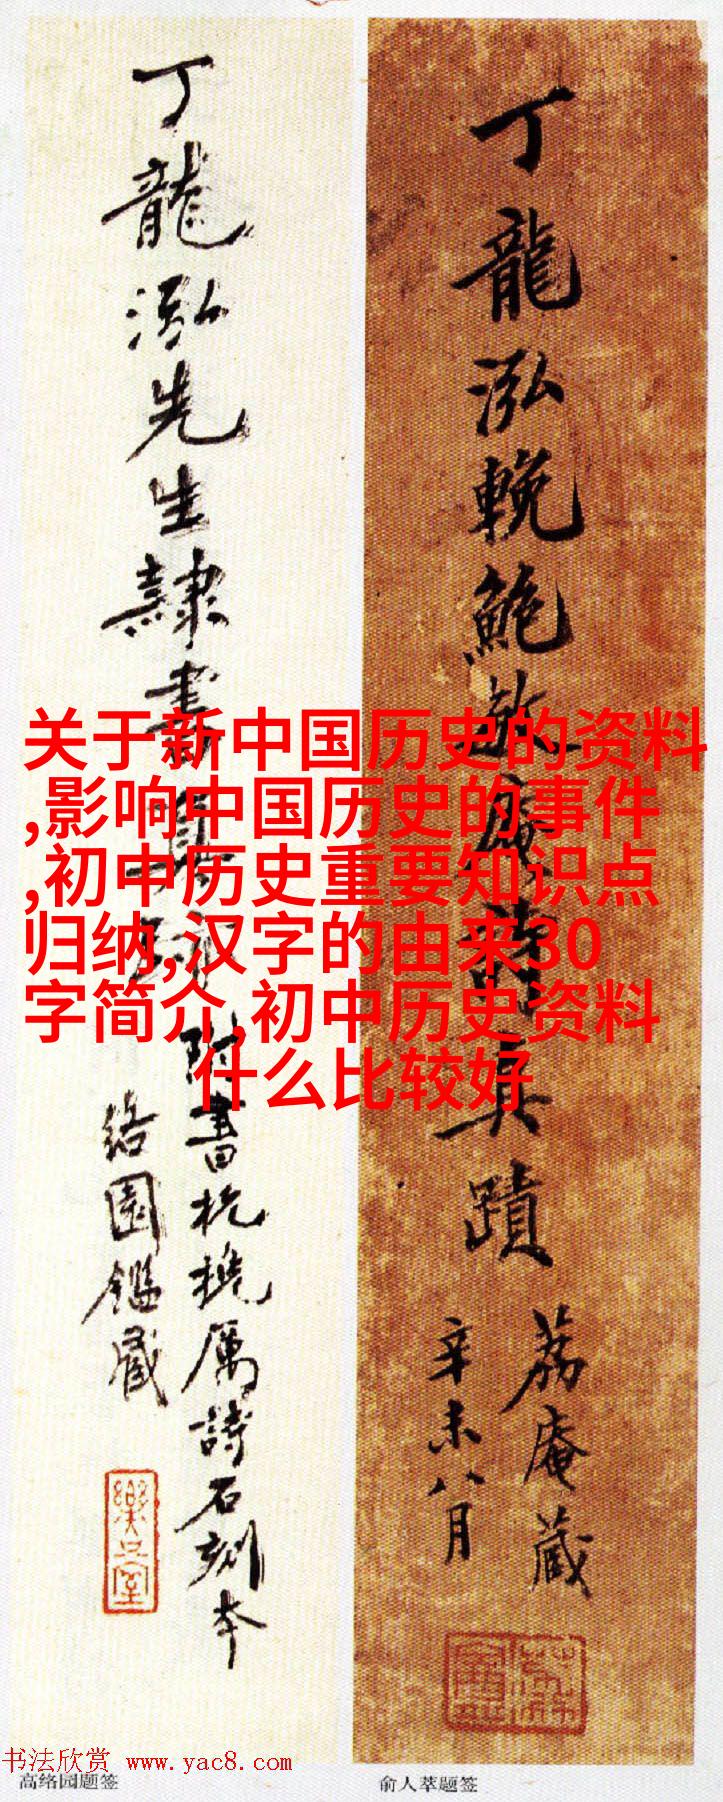 丁龍泓先生隸書真跡
附書杭撓厲詩石刻本
絡園鑑藏
丁龍泓輓鮑敬庵詩真蹟
荔庵藏
辛未八月
关于新中国历史的资料
,影响中国历史的事件
,初中历史重要知识点
归纳,汉字的由来30
字简介,初中历史资料
什么比较好
书法欣赏 www.yac8.com
高络园题签
俞人萃题签